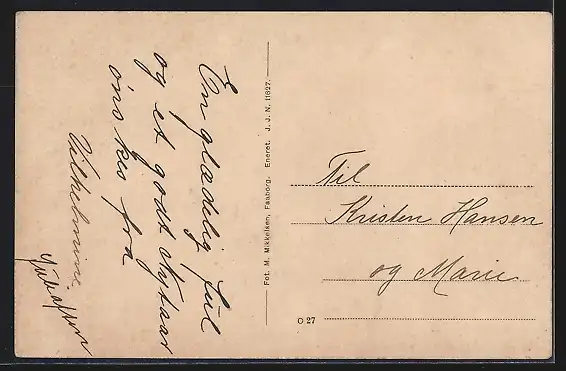 En glædelig Jul
og et godt Nytaar
önskes fra
Vilhelmine
Fot. M. Mikkelsen, Faaborg. Eneret. J. J. N. 11827.
Til
Kristen Hansen
og Marie
O 27